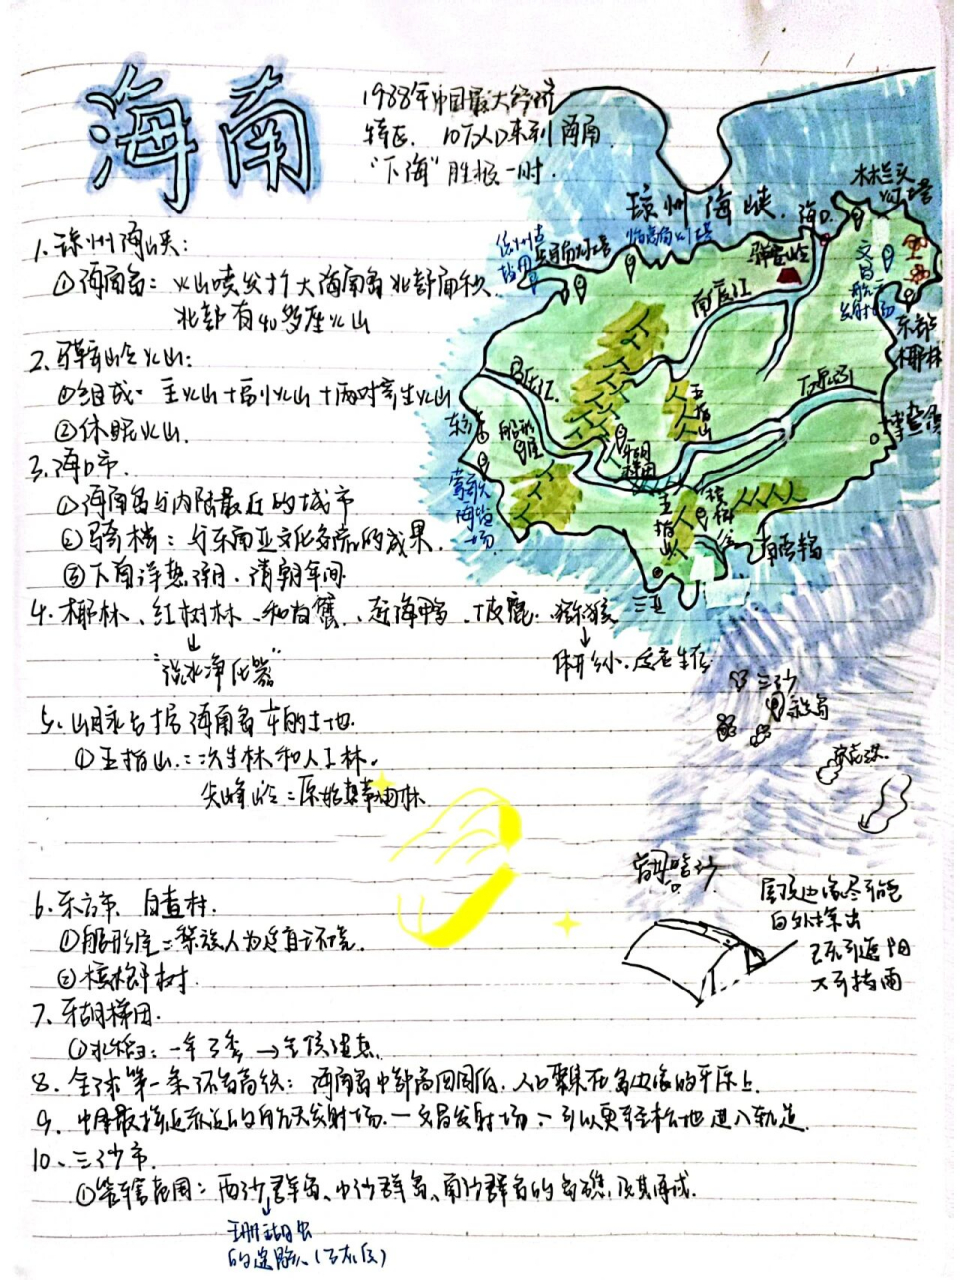 海南
1988年中国最大经济
特区，10万人口来到海南
“下海”胜极一时.
琼州海峡.
海口.
木兰头
灯塔
临高角灯塔
马鞍岭
南渡江
文昌
航天
发射场
东郊
椰林
昌江
万泉河
五
指
山
博鳌
东方
船形
屋
牙胡
梯田
莺歌
海盐
场
槟榔
谷
三亚
1.琼州海峡:
①海南岛：火山喷发扩大海南岛北部面积
北部有40多座火山
2.马鞍岭火山:
①组成：主火山+副火山+两对寄生火山
②休眠火山.
3.海口市.
①海南岛与内陆最近的城市
②骑楼：与东南亚文化交流的成果.
③下南洋热潮.清朝年间
4.椰林、红树林、和白鹭、赶海鸭、坡鹿.猕猴
↓
↓
“海水净化器”
体形小.适应生存
三沙
永兴岛
5.山脉占据海南岛的土地.
①五指山：二次生林和人工林.
尖峰岭：原始热带雨林
曾母暗沙
屋顶边缘尽可能
向外探出
既可遮阳
又可挡雨
6.东方市、白查村.
①船形屋：黎族人为适宜环境.
②槟榔树.
7.牙胡梯田.
①水稻：一年3季→气候湿热.
8.全球第一条环岛高铁：海南岛中部高四周低.人口聚集在岛边缘的平原上.
9.中国最接近赤道的航天发射场.一文昌发射场、可以更轻松地进入轨道.
10、三沙市.
①管辖范围：西沙群岛、中沙群岛、南沙群岛的岛礁及其海域.
↓
珊瑚虫
的遗骸、(石灰质)